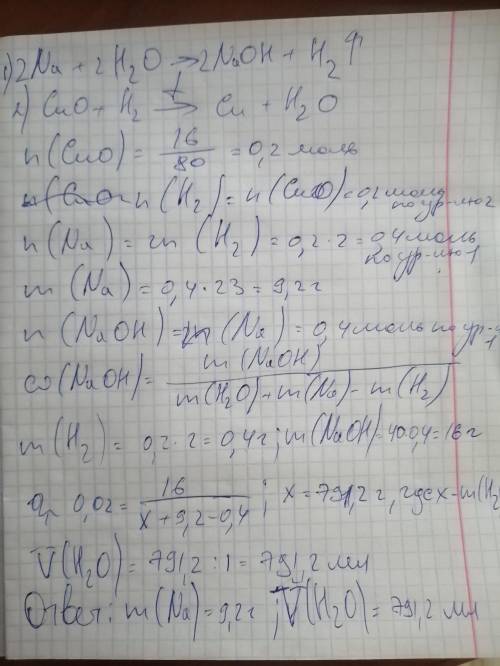 1) 2Na + 2H₂O → 2NaOH + H₂↑
2) CuO + H₂ →ᵗ Cu + H₂O
n(CuO) = 16/80 = 0,2 моль
n(H₂) = n(CuO) = 0,2 моль по ур-ию 2
n(Na) = 2n(H₂) = 0,2·2 = 0,4 моль по ур-ию 1
m(Na) = 0,4·23 = 9,2 г
n(NaOH) = n(Na) = 0,4 моль по ур-
ω(NaOH) = m(NaOH) / m(H₂O)+m(Na)-m(H₂)
m(H₂) = 0,2·2 = 0,4 г; m(NaOH) = 40·0,4 = 16 г
0,02 = 16 / x+9,2-0,4; x = 791,2 г, где x - m(H₂
V(H₂O) = 791,2 : 1 = 791,2 мл
Ответ: m(Na) = 9,2 г; V(H₂O) = 791,2 мл